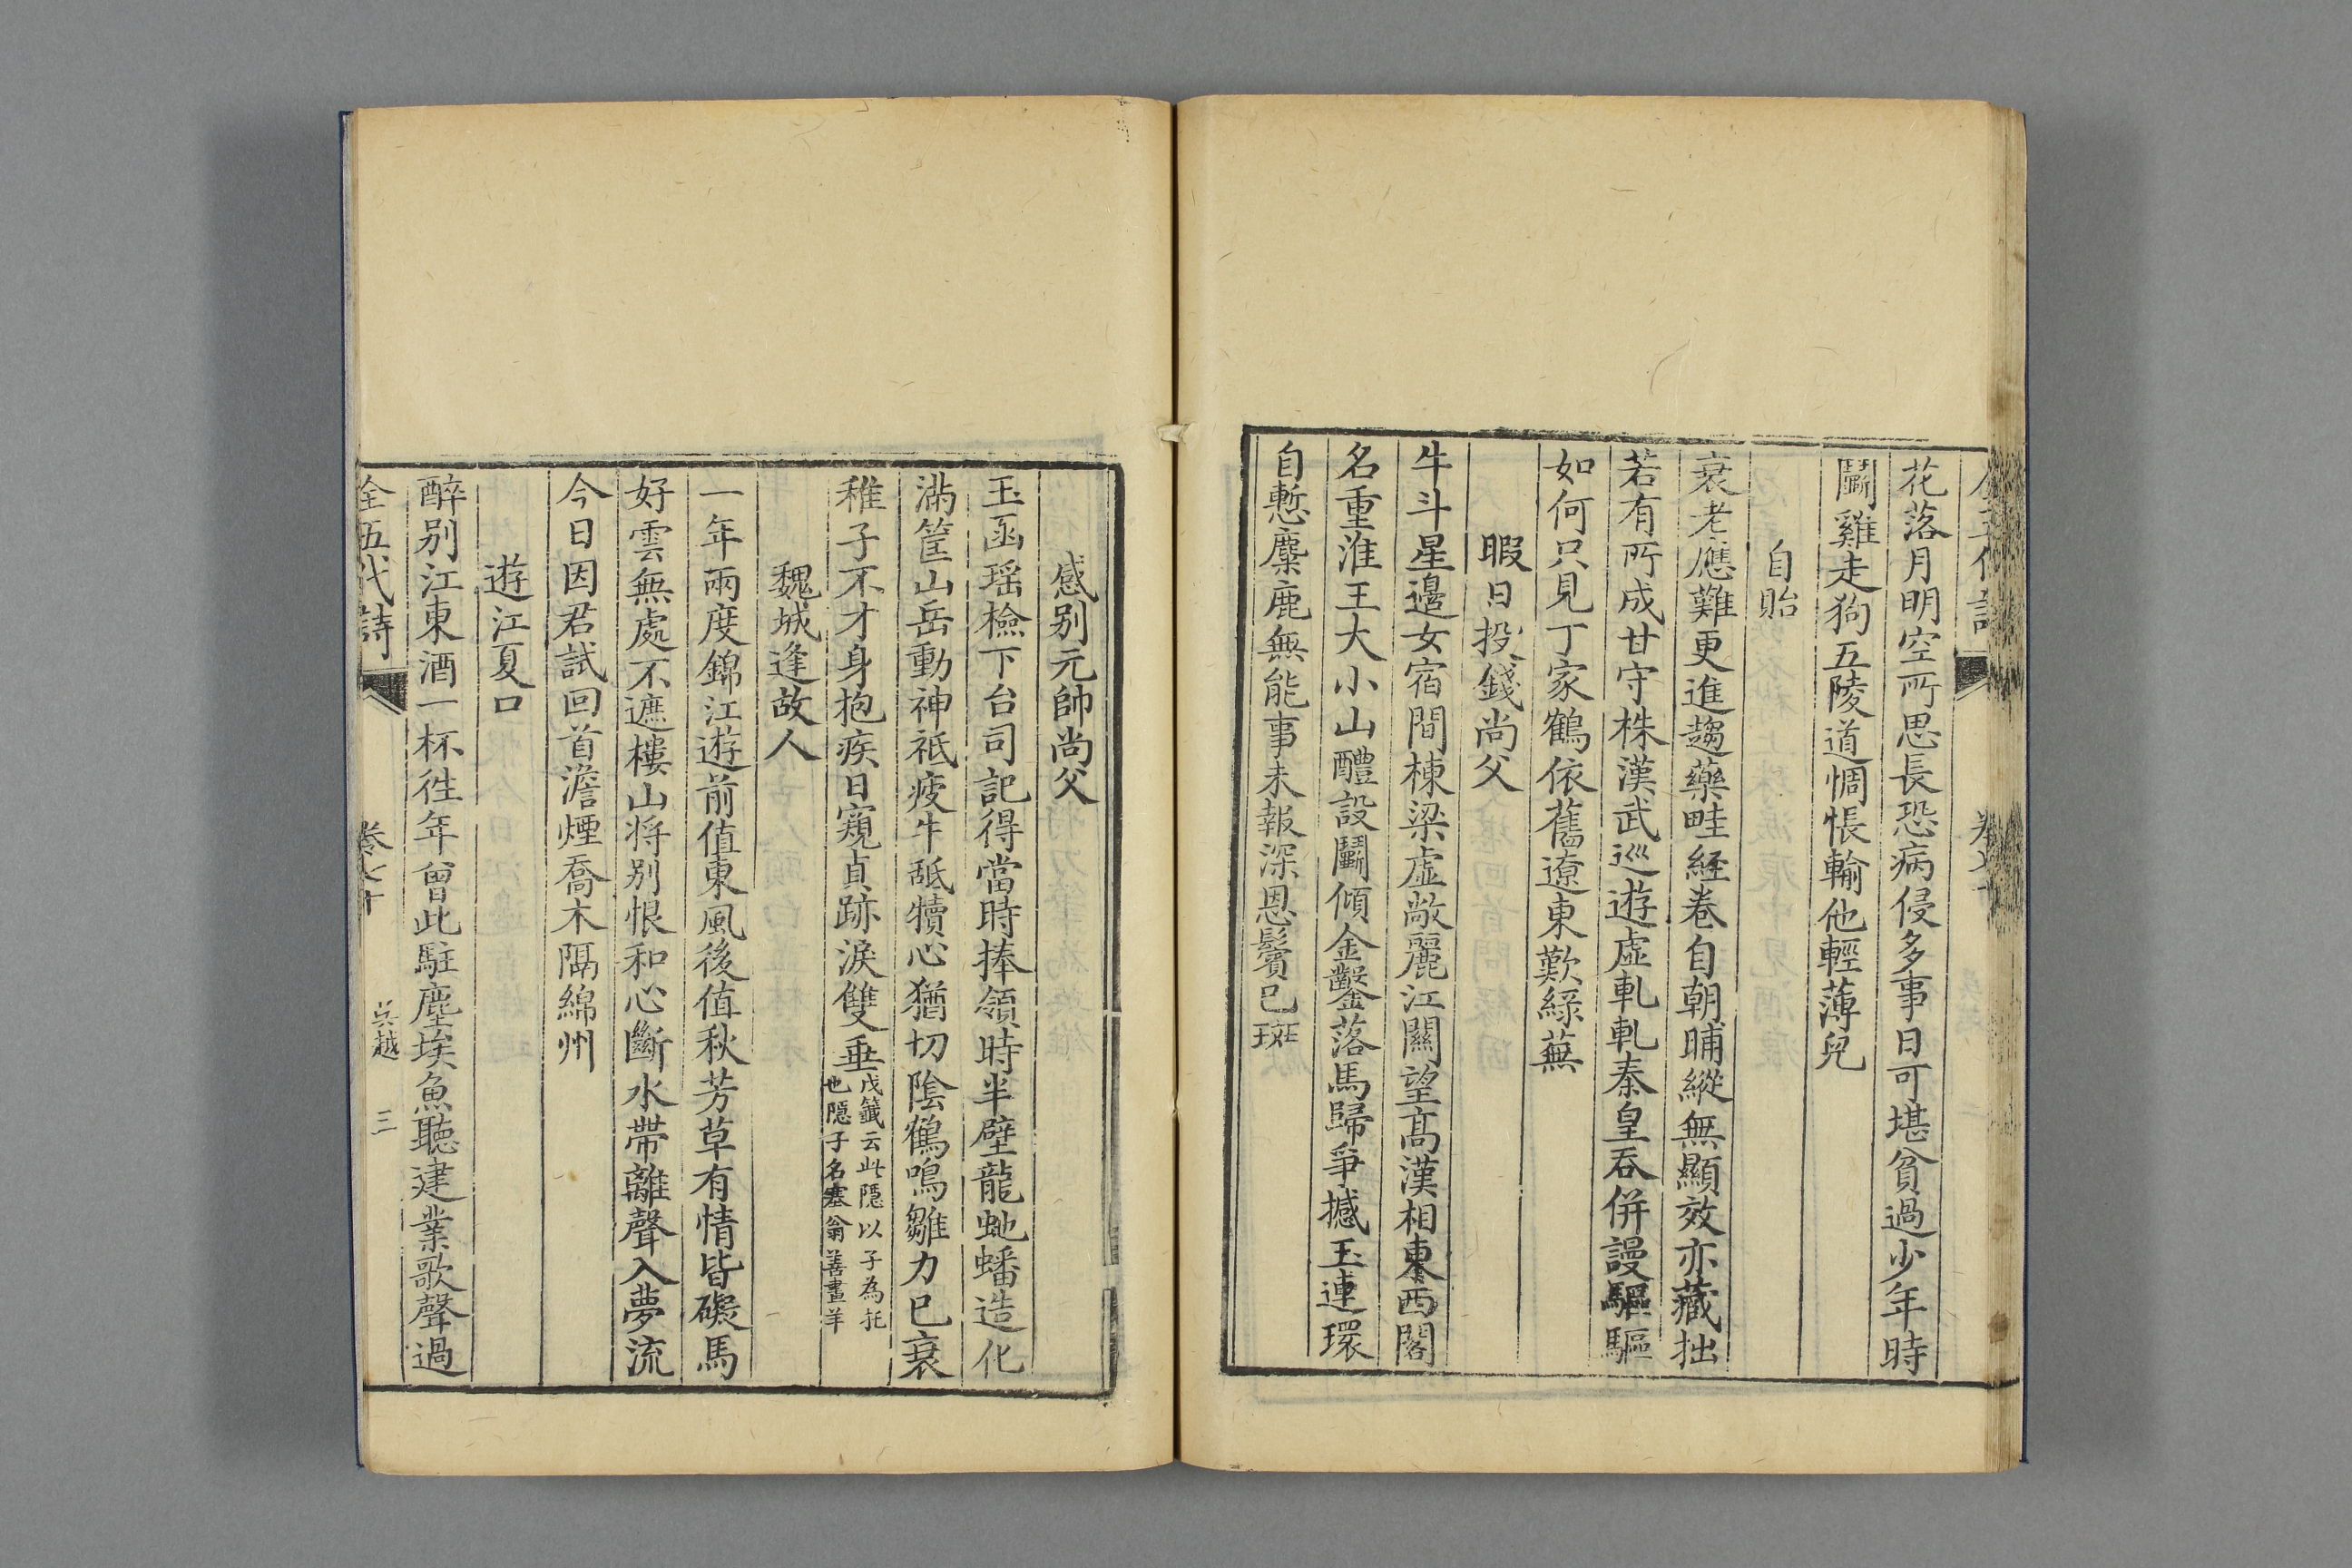 花落月明空所思長恐病侵多事日可堪貧過少年時
鬬雞走狗五陵道惆悵輸他輕薄兒
自貽
衰老應難更進趨藥畦経卷自朝晡縱無顯效亦藏拙
若有所成甘守株漢武巡遊虛軋軋秦皇吞併謾驅驅
如何只見丁家鶴依舊遼東歎綠蕪
暇日投錢尚父
牛斗星邊女宿間棟梁虛敞麗江關望高漢相東西閣
名重淮王大小山醴設鬬傾金鑿落馬歸爭撼玉連環
自慙麋鹿無能事未報深恩鬢已斑
感别元帥尚父
玉函瑶檢下台司記得當時捧領時半壁龍虵蟠造化
滿筐山岳動神祇疲牛舐犢心猶切陰鶴鳴雛力已衰
稚子不才身抱疾日窺貞跡淚雙垂戊籖云此隱以子為托
也隱子名塞翁善畫羊
魏城逢故人
一年兩度錦江遊前值東風後值秋芳草有情皆礙馬
好雲無處不遮樓山将别恨和心斷水帶離聲入夢流
今日因君試回首澹煙喬木隔綿州
遊江夏口
醉别江東酒一杯徃年曾此駐塵埃魚聽建業歌聲過
全五代詩 卷七十 吳越 三